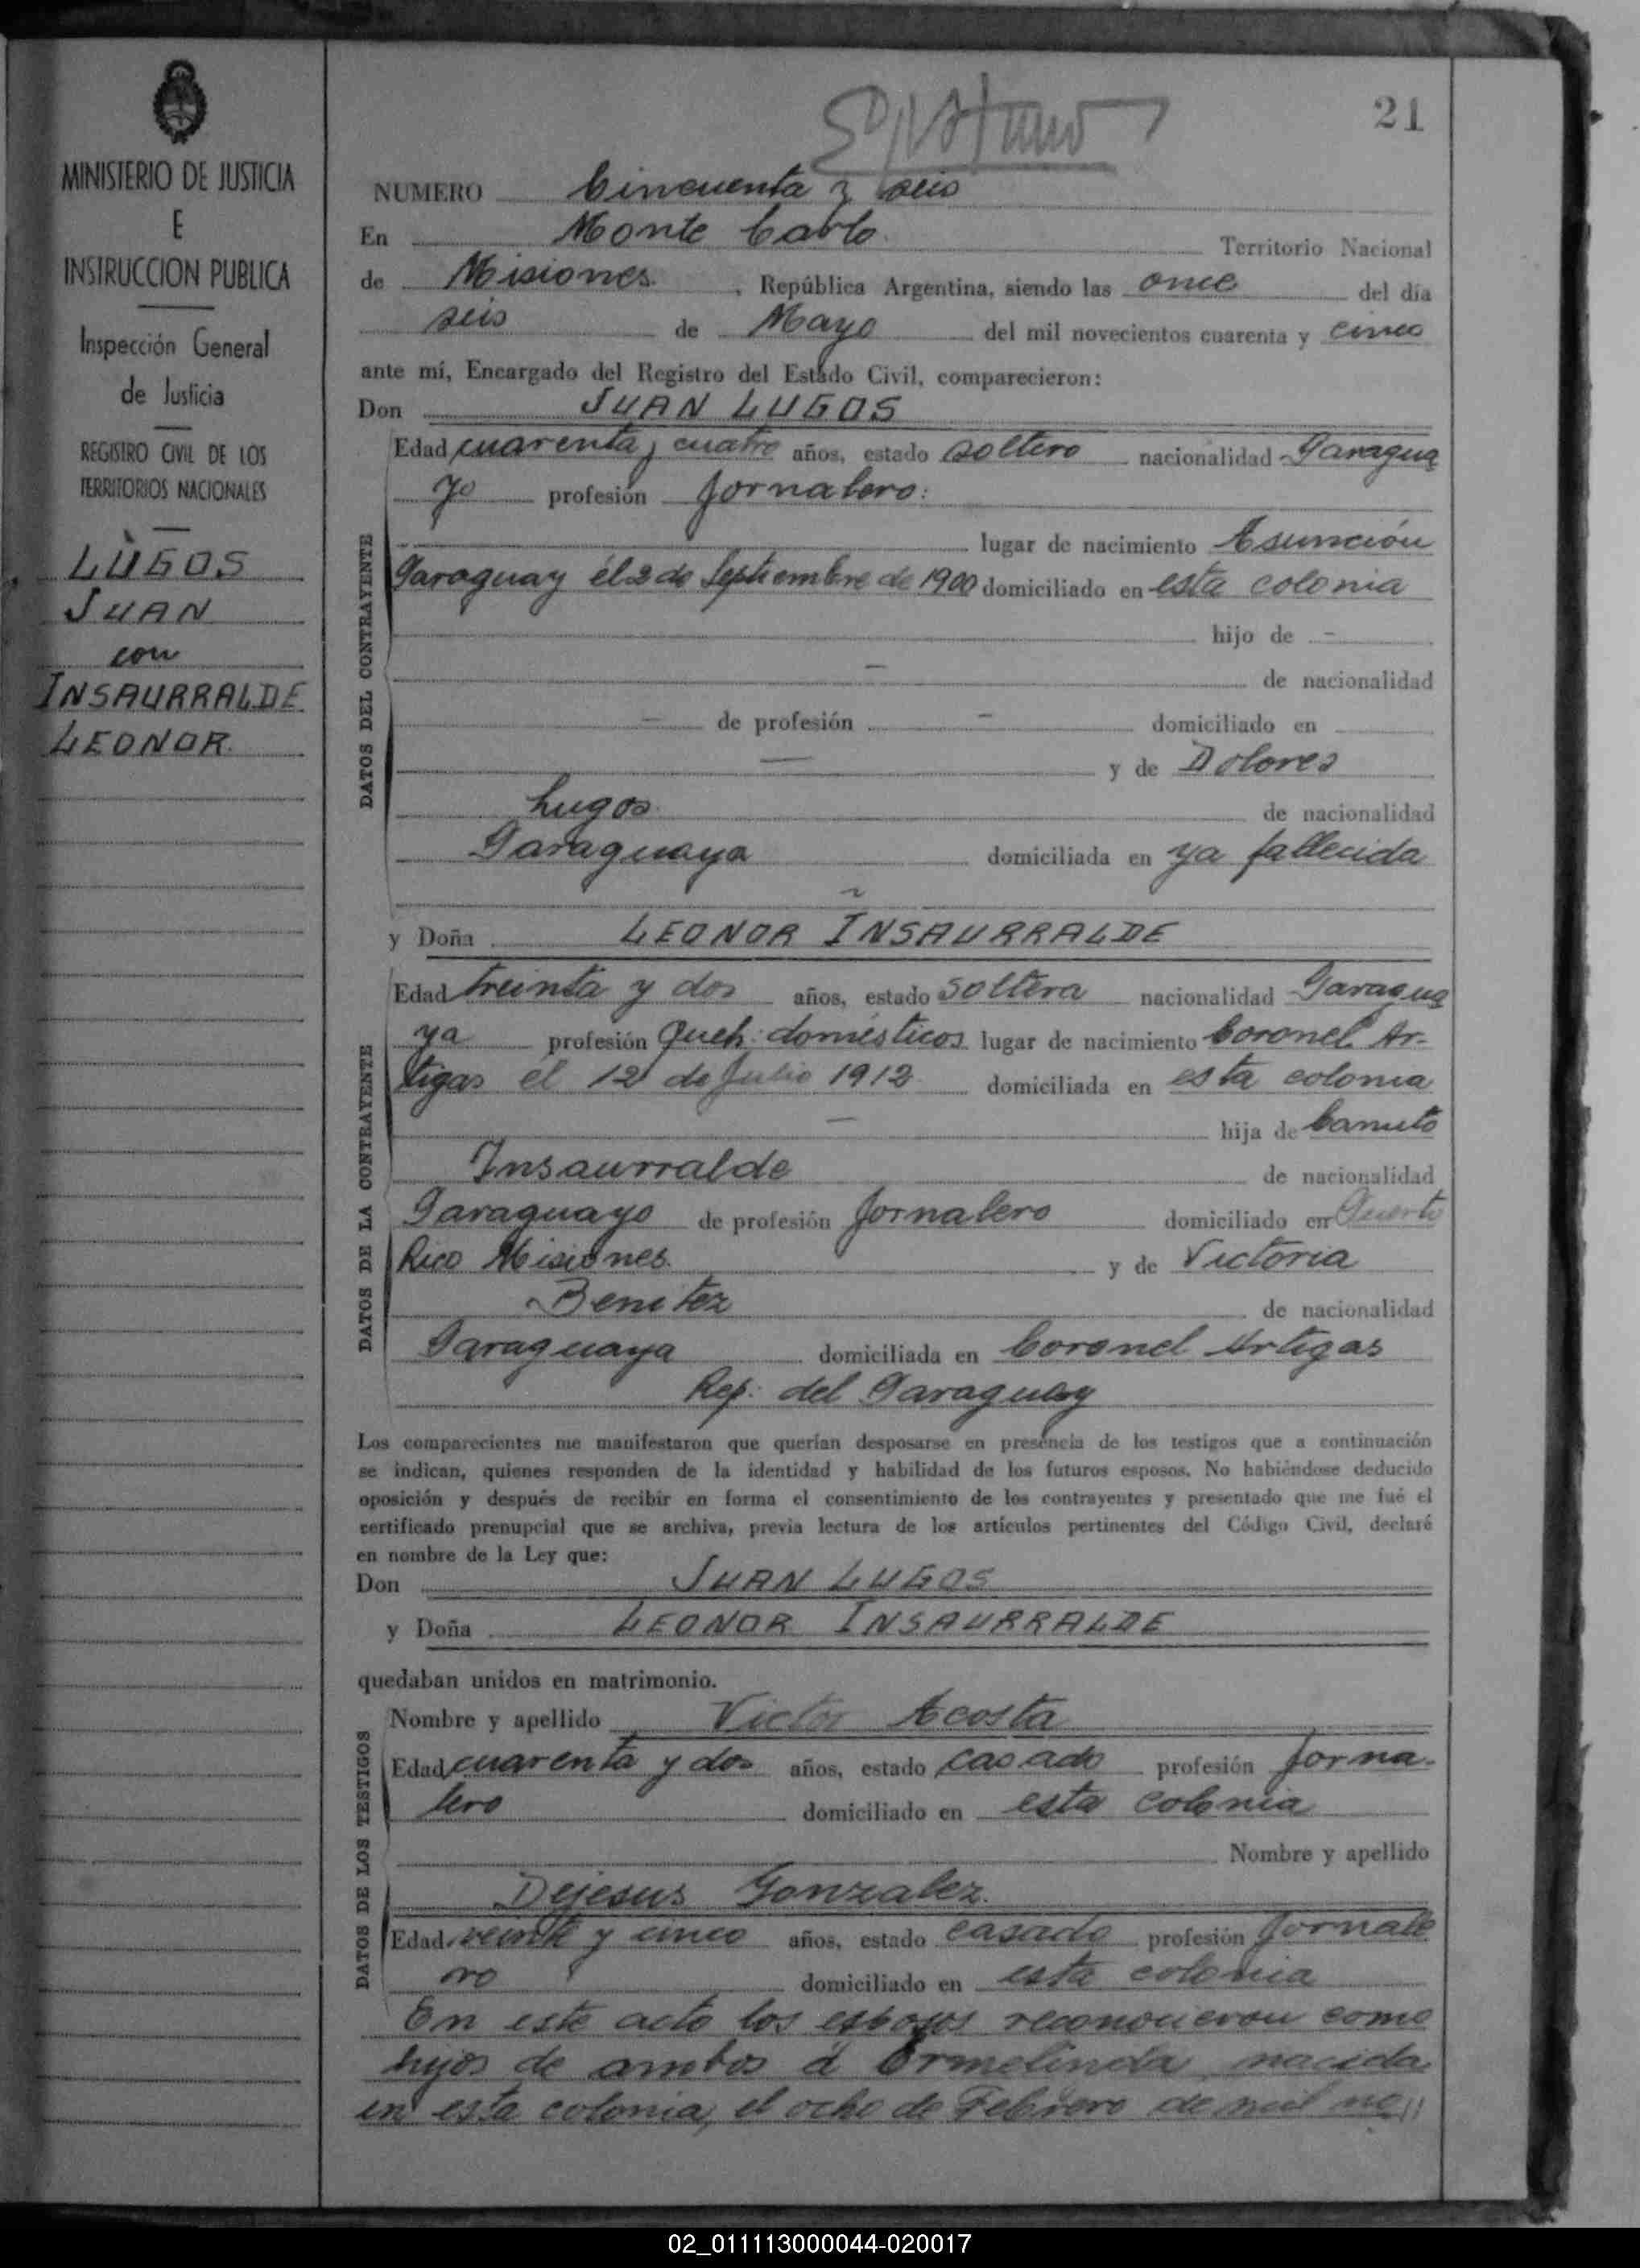 21
MINISTERIO DE JUSTICIA
E
INSTRUCCION PUBLICA
Inspección General
de Justicia
REGISTRO CIVIL DE LOS
TERRITORIOS NACIONALES
LUGOS
JUAN
con
INSAURRALDE
LEONOR.
NUMERO Cincuenta y seis
En Monte Carlo. Territorio Nacional
de Misiones. , República Argentina, siendo las once del día
seis de Mayo del mil novecientos cuarenta y cinco
ante mí, Encargado del Registro del Estado Civil, comparecieron:
Don JUAN LUGOS
DATOS DEL CONTRAYENTE
Edad cuarenta y cuatro años, estado soltero nacionalidad Paragua
yo profesión Jornalero.
lugar de nacimiento Asunción
Paraguay él 2 de Septiembre de 1900 domiciliado en esta colonia
hijo de -
— de nacionalidad
— de profesión — domiciliado en
— y de Dolores
Lugos. de nacionalidad
Paraguaya domiciliada en ya fallecida
y Doña LEONOR INSAURRALDE
DATOS DE LA CONTRAYENTE
Edad treinta y dos años, estado soltera nacionalidad Paragua
ya profesión Queh. domésticos lugar de nacimiento Coronel Ar-
tigas él 12 de Julio 1912 domiciliada en esta colonia
— hija de Canuto
Insaurralde de nacionalidad
Paraguayo de profesión Jornalero domiciliado en Puerto
Rico Misiones. y de Victoria
Benitez de nacionalidad
Paraguaya domiciliada en Coronel Artigas
Rep. del Paraguay
Los comparecientes me manifestaron que querían desposarse en presencia de los testigos que a continuación
se indican, quienes responden de la identidad y habilidad de los futuros esposos. No habiéndose deducido
oposición y después de recibir en forma el consentimiento de los contrayentes y presentado que me fué el
certificado prenupcial que se archiva, previa lectura de los artículos pertinentes del Código Civil, declaré
en nombre de la Ley que:
Don JUAN LUGOS
y Doña LEONOR INSAURRALDE
quedaban unidos en matrimonio.
DATOS DE LOS TESTIGOS
Nombre y apellido Victor Acosta
Edad cuarenta y dos años, estado casado profesión Jorna-
lero domiciliado en esta colonia
Nombre y apellido
Dejesus Gonzalez.
Edad veinte y cinco años, estado casado profesión Jornale
ro domiciliado en esta colonia
En este acto los esposos reconocieron como
hijos de ambos á Ermelinda nacida
en esta colonia, el ocho de Febrero de mil no
02_011113000044-020017